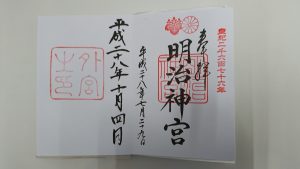 皇紀二千六百七十六年
奉拝
明治神宮
平成二十八年七月二十九日
平成二十八年十月四日
外宮之印